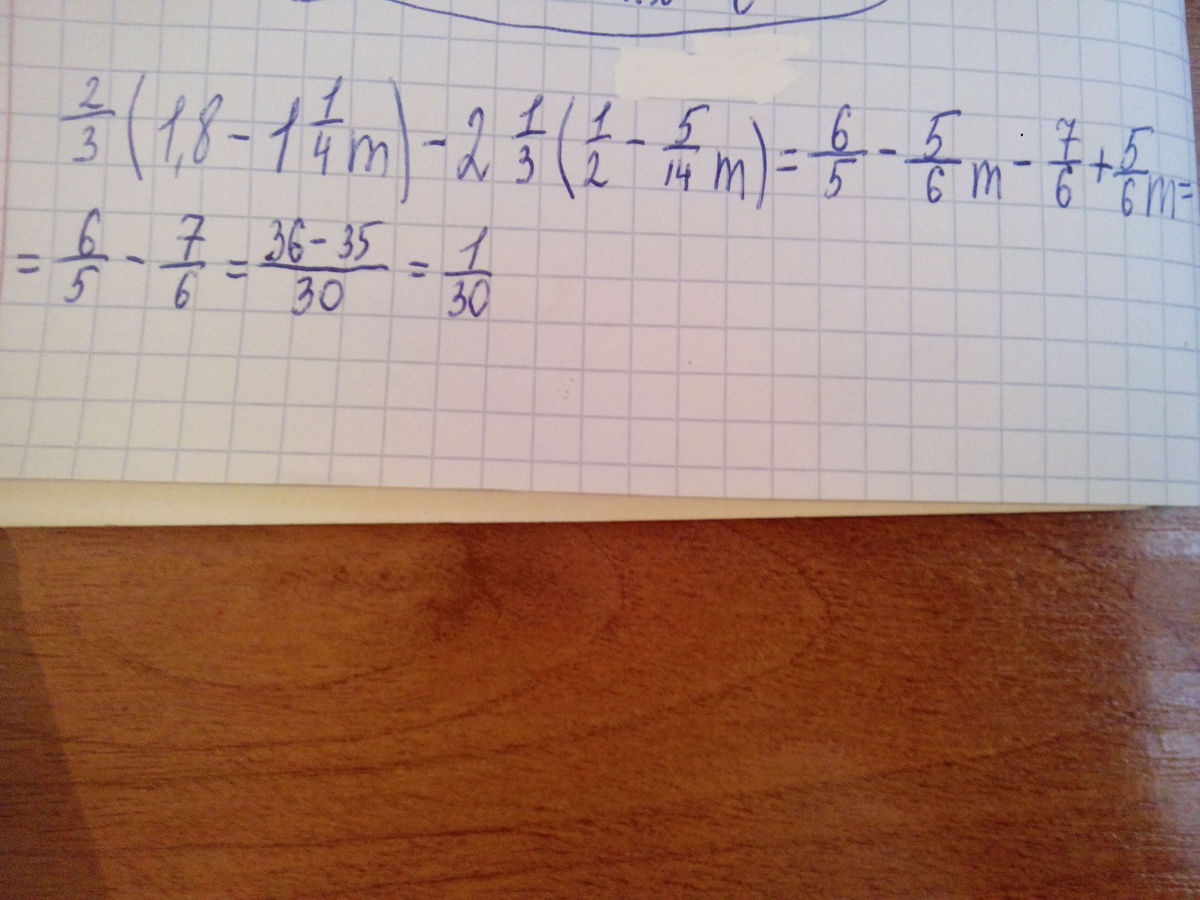 2/3 (1,8 - 1 1/4 m) - 2 1/3 (1/2 - 5/14 m) = 6/5 - 5/6 m - 7/6 + 5/6 m =
= 6/5 - 7/6 = 36-35/30 = 1/30